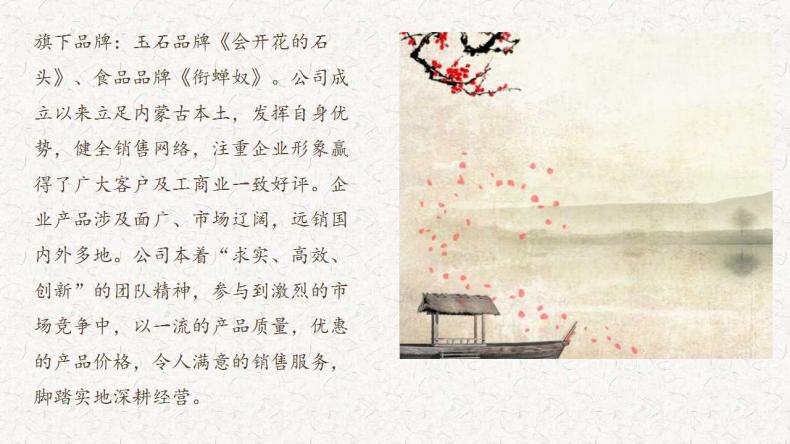 旗下品牌：玉石品牌《会开花的石
头》、食品品牌《衔蝉奴》。公司成
立以来立足内蒙古本土，发挥自身优
势，健全销售网络，注重企业形象赢
得了广大客户及工商业一致好评。企
业产品涉及面广、市场辽阔，远销国
内外多地。公司本着“求实、高效、
创新”的团队精神，参与到激烈的市
场竞争中，以一流的产品质量，优惠
的产品价格，令人满意的销售服务，
脚踏实地深耕经营。